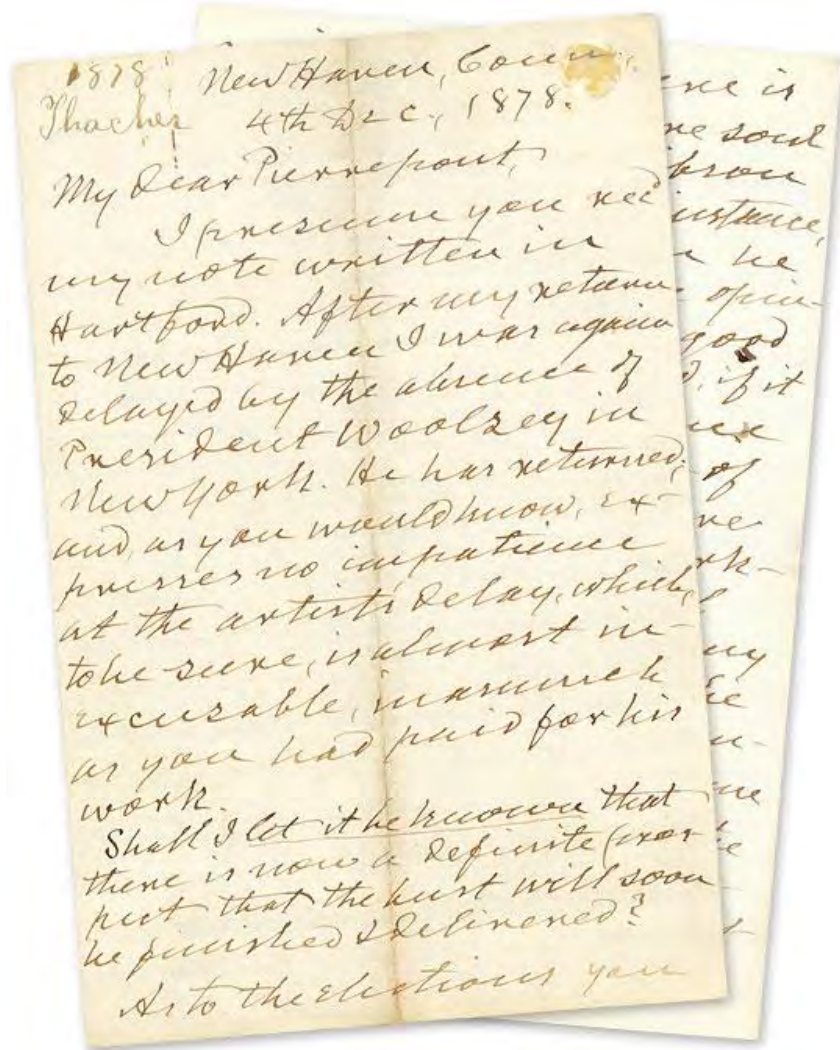 1878
Thacher
New Haven, Conn.
4th Dec., 1878.
My dear Pierrepont,
I presume you rec'd
my note written in
Hartford. After my return
to New Haven I was again
delayed by the absence of
President Woolsey in
New York. He has returned,
and, as you would know, ex-
presses no impatience
at the artist's delay, which,
to be sure, is almost in-
excusable, inasmuch
as you had paid for his
work.
Shall I let it be known that
there is now a definite pros-
pect that the bust will soon
be finished & delivered?
As to the elections you
ere is
re soul
bson
instance,
he
opin-
good
if it
of
ve
rk-
ny
he
u-
me